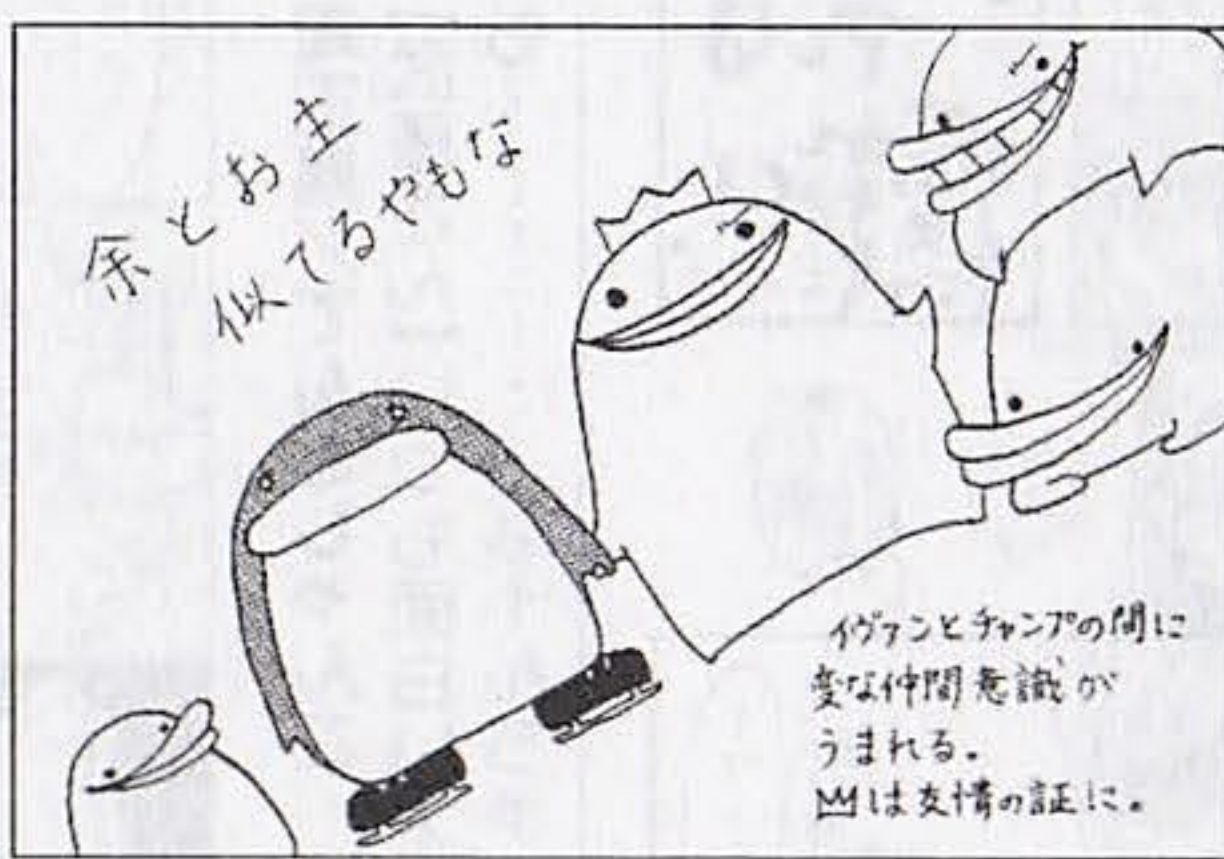 余とお主
似てるやもな
イヴァンとチャンプの間に
変な仲間意識が
うまれる。
👑は友情の証に。